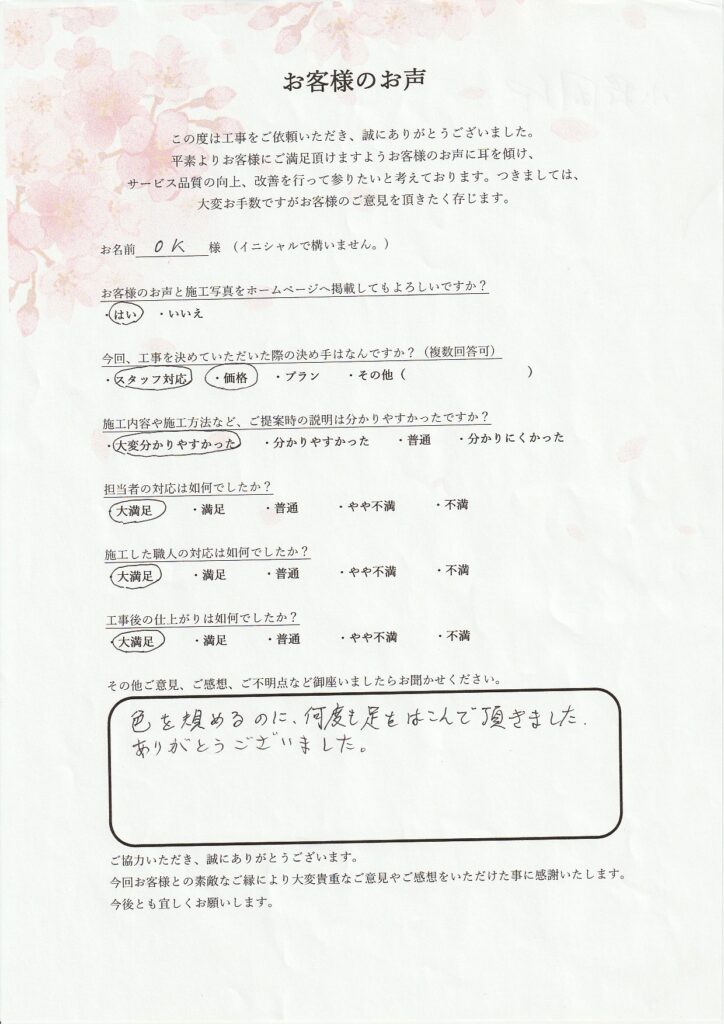 お客様のお声
この度は工事をご依頼いただき、誠にありがとうございました。
平素よりお客様にご満足頂けますようお客様のお声に耳を傾け、
サービス品質の向上、改善を行って参りたいと考えております。つきましては、
大変お手数ですがお客様のご意見を頂きたく存じます。
お名前 OK 様 (イニシャルで構いません。)
お客様のお声と施工写真をホームページへ掲載してもよろしいですか?
・はい ・いいえ
今回、工事を決めていただいた際の決め手はなんですか?(複数回答可)
・スタッフ対応 ・価格 ・プラン ・その他( )
施工内容や施工方法など、ご提案時の説明は分かりやすかったですか?
・大変分かりやすかった ・分かりやすかった ・普通 ・分かりにくかった
担当者の対応は如何でしたか?
・大満足 ・満足 ・普通 ・やや不満 ・不満
施工した職人の対応は如何でしたか?
・大満足 ・満足 ・普通 ・やや不満 ・不満
工事後の仕上がりは如何でしたか?
・大満足 ・満足 ・普通 ・やや不満 ・不満
その他ご意見、ご感想、ご不明点など御座いましたらお聞かせください。
色を決めるのに、何度も足をはこんで頂きました.
ありがとうございました。
ご協力いただき、誠にありがとうございます。
今回お客様との素敵なご縁により大変貴重なご意見やご感想をいただけた事に感謝いたします。
今後とも宜しくお願いします。